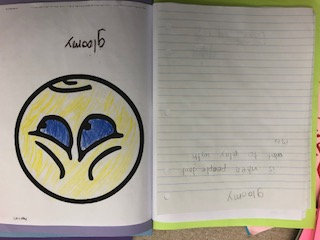 gloomy
gloomy
is when people dont
to play with